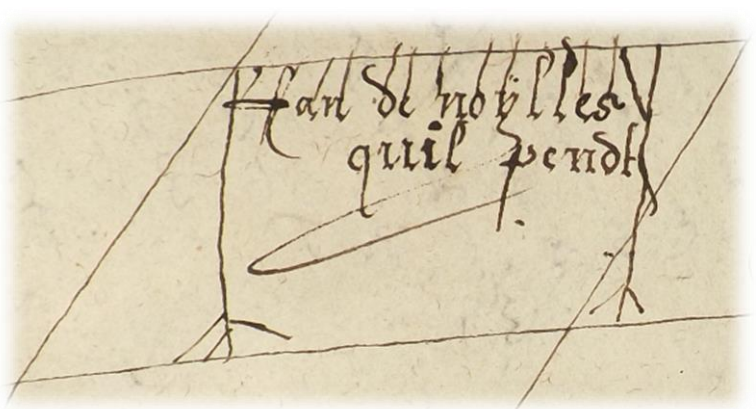 Jhan de noÿlles
quil pendt